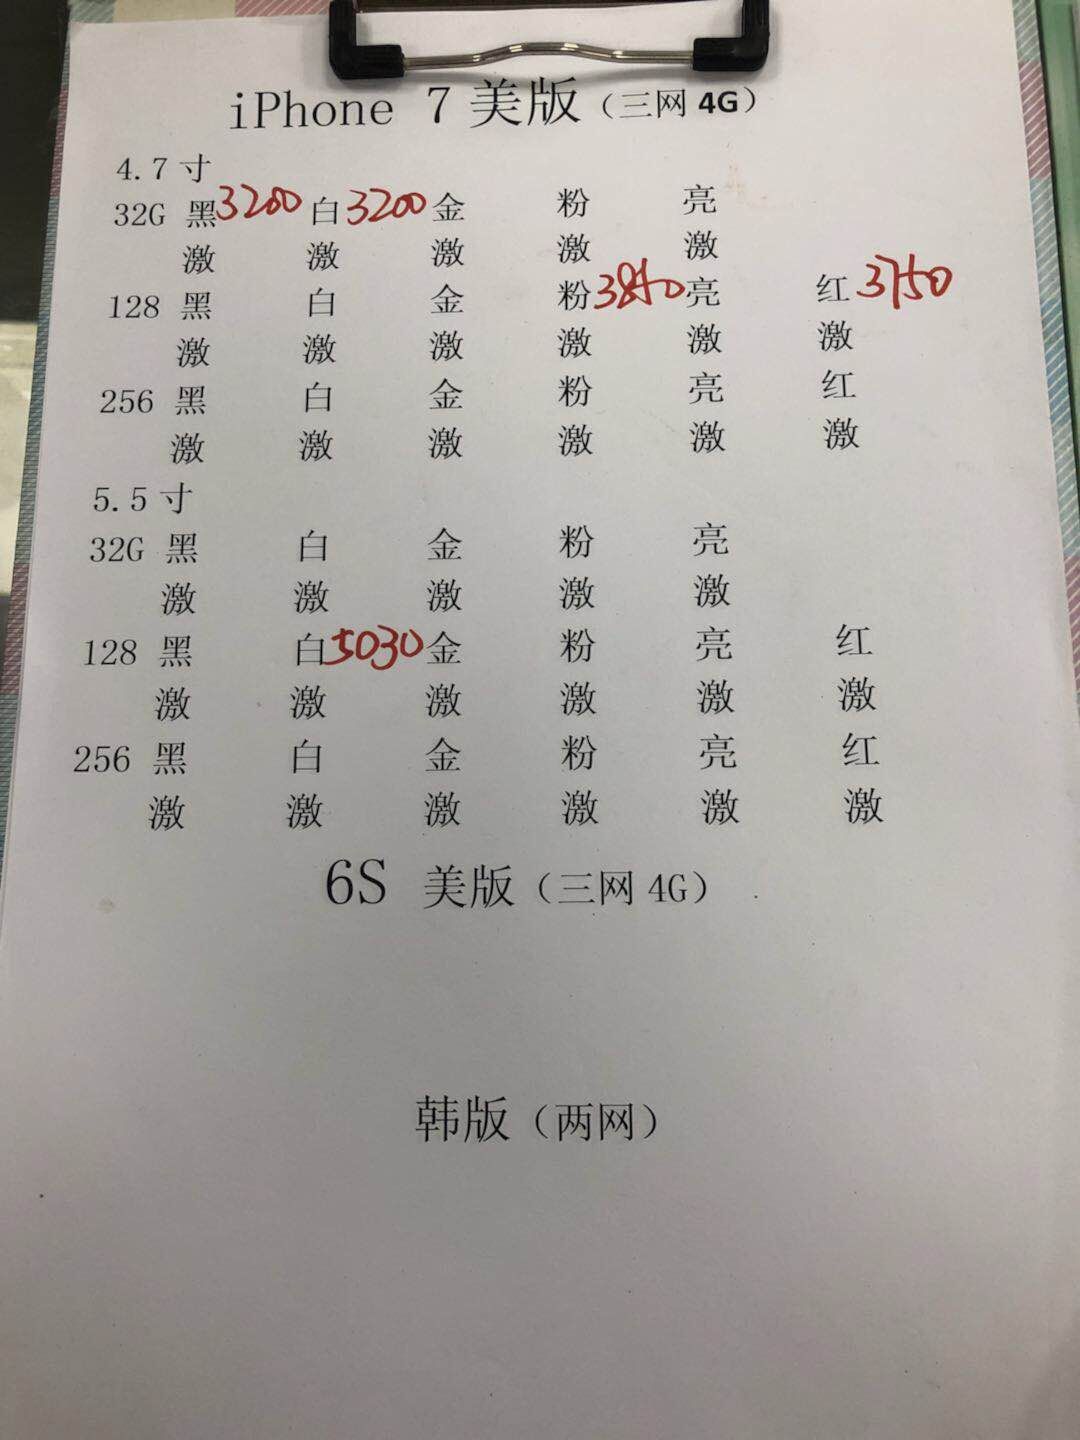 iPhone 7 美版（三网 4G）
4.7 寸
32G 黑 3200 白 3200 金 粉 亮
激 激 激 激 激
128 黑 白 金 粉 3850 亮 红 3750
激 激 激 激 激 激
256 黑 白 金 粉 亮 红
激 激 激 激 激 激
5.5 寸
32G 黑 白 金 粉 亮
激 激 激 激 激
128 黑 白 5030 金 粉 亮 红
激 激 激 激 激 激
256 黑 白 金 粉 亮 红
激 激 激 激 激 激
6S 美版（三网 4G）
韩版（两网）